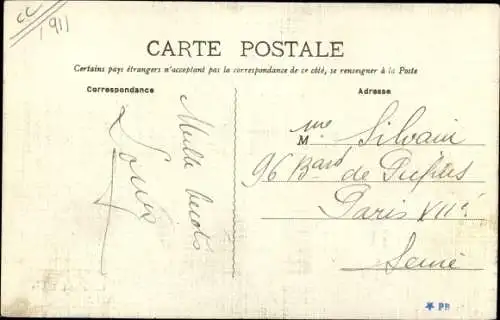 cc
1911
CARTE POSTALE
Certains pays étrangers n'acceptent pas la correspondance de ce côté, se renseigner à la Poste
Correspondance
Adresse
Mille
Louis
M.me Silvain
96 Bard de
Paris VIIe
Seine
★ PR